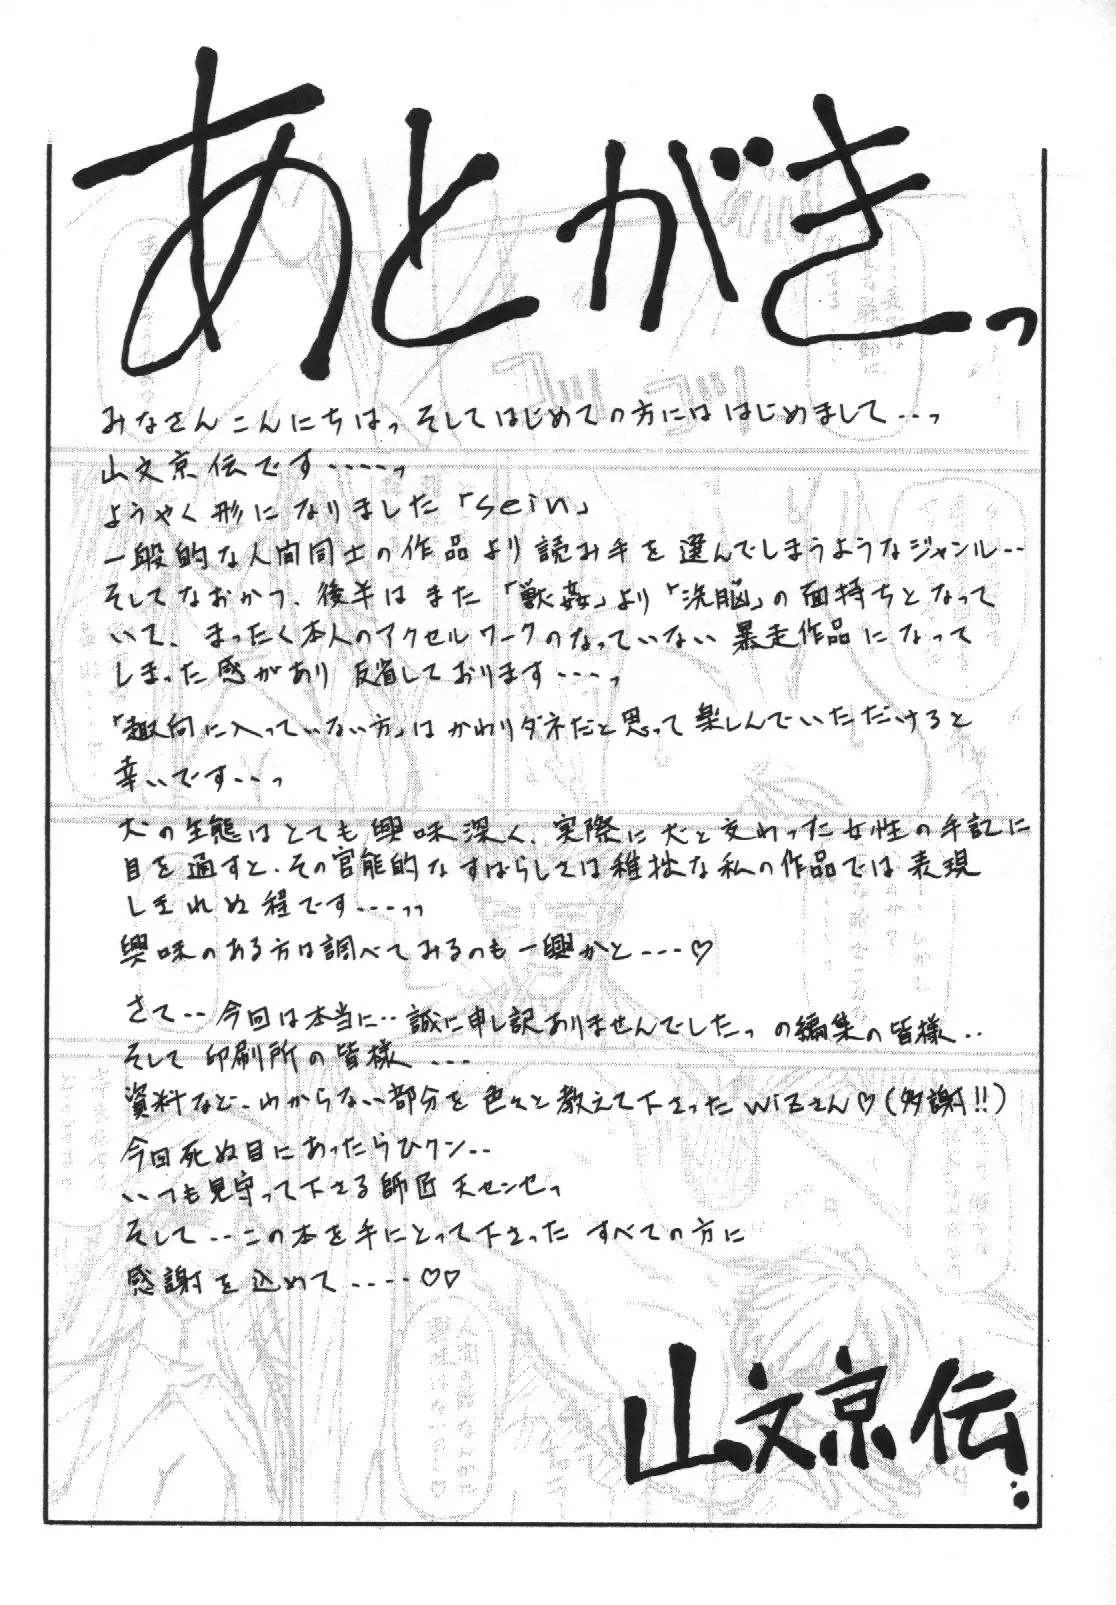 あとがきっ
みなさんこんにちはっ そしてはじめての方には はじめまして‥‥っ
山文京伝です‥‥‥っ
ようやく形になりました「sein」
一般的な人間同士の作品より読み手を選んでしまうようなジャンル‥‥
そしてなおかつ、後半はまた「獣姦」より「洗脳」の面持ちとなって
いて、まったく本人のアクセルワークのなっていない暴走作品になって
しまった感があり 反省しております‥‥っ
「趣向に入っていない方」はかわりダネだと思って楽しんでいただけると
幸いです‥‥っ
犬の生態はとても興味深く、実際に犬と交わった女性の手記に
目を通すと、その官能的なすばらしさは稚拙な私の作品では表現
しきれぬ程です‥‥っっ
興味のある方は調べてみるのも一興かと‥‥♡
さて‥‥今回は本当に‥‥誠に申し訳ありませんでしたっ の編集の皆様‥‥
そして印刷所の皆様‥‥
資料など、わからない部分を色々と教えて下さったwizさん♡(多謝!!)
今回死ぬ目にあったらひクン‥‥
いつも見守って下さる師匠 天センセっ
そして‥‥この本を手にとって下さった すべての方に
感謝を込めて‥‥‥♡♡
山文京伝
コツ コツ